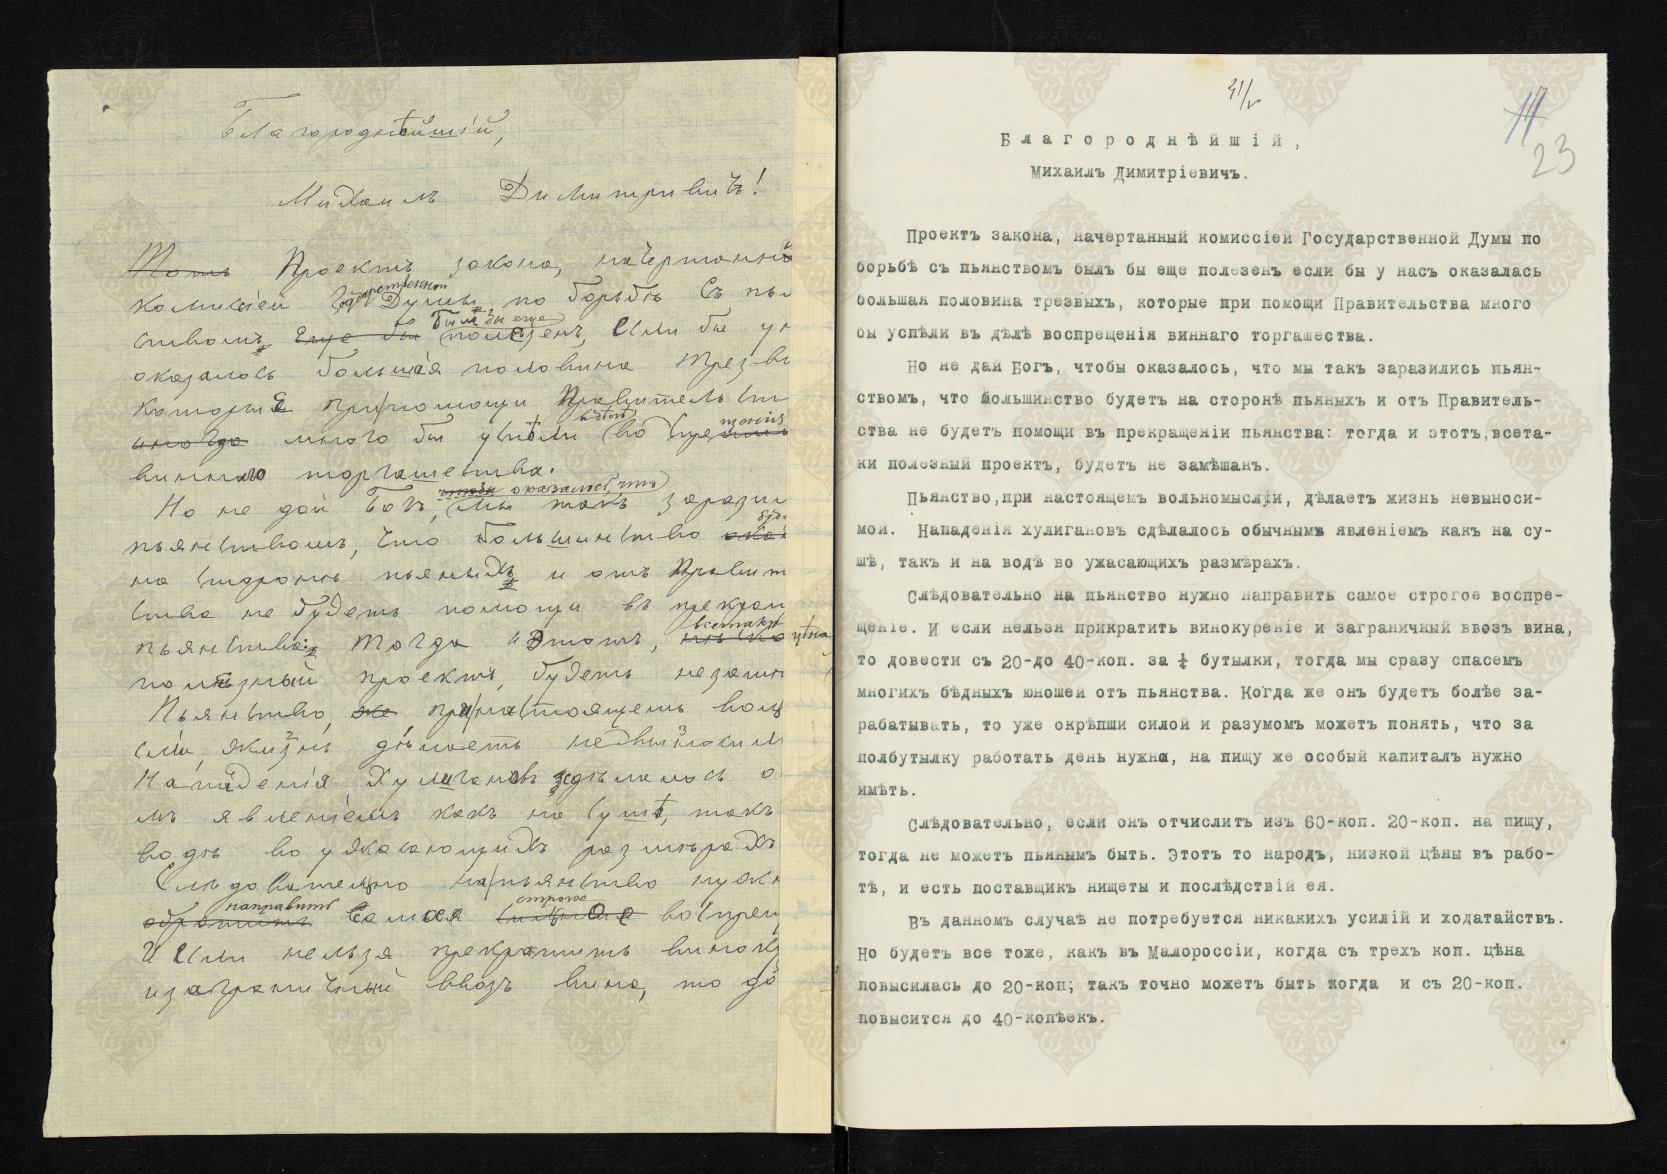 Благороднѣйшій,
Михаилъ Димитриевичъ!
Проектъ закона, начертанны
комиссіей Государственной Думы по борьбѣ съ пья
ствомъ еще бы былъ бы еще полезенъ, если бы у н
оказалось большая половина трезвы
которыя при помощи Правительст
много бы успѣли въ дѣлѣ
виннаго торгашества.
Но не дай Богъ, чтобы оказалось, что мы такъ зарази
пьянствомъ, что большинство
на сторонѣ пьяныхъ и отъ Правит
ства не будетъ помощи въ прекра
пьянства: тогда и этотъ, всетаки
полезный проектъ, будетъ незамѣ
Пьянство, же при настоящемъ воль
жизнь дѣлаетъ
Нападенія Хулигановъ сдѣлалось о
мъ явленіемъ какъ на сушѣ, такъ
водѣ во ужасающихъ размѣрахъ
Слѣдовательно на пьянство нужн
направить самое строгое воспрещ
И если нельзя прекратить виноку
и заграничный ввозъ вина, то до
31/V
23
Благороднѣйшій,
Михаилъ Димитріевичъ.
Проектъ закона, начертанный комиссіей Государственной Думы по
борьбѣ съ пьянствомъ былъ бы еще полезенъ если бы у насъ оказалась
большая половина трезвыхъ, которые при помощи Правительства много
бы успѣли въ дѣлѣ воспрещенія виннаго торгашества.
Но не дай Богъ, чтобы оказалось, что мы такъ заразились пьян-
ствомъ, что большинство будетъ на сторонѣ пьяныхъ и отъ Правитель-
ства не будетъ помощи въ прекращеніи пьянства: тогда и этотъ,всета-
ки полезный проектъ, будетъ не замѣшанъ.
Пьянство,при настоящемъ вольномысліи, дѣлаетъ жизнь невыноси-
мой. Нападенія хулигановъ сдѣлалось обычнымъ явленіемъ какъ на су-
шѣ, такъ и на водѣ во ужасающихъ размѣрахъ.
Слѣдовательно на пьянство нужно направить самое строгое воспре-
щеніе. И если нельзя прикратить винокуреніе и заграничный ввозъ вина,
то довести съ 20-до 40-коп. за ½ бутылки, тогда мы сразу спасемъ
многихъ бѣдныхъ юношей отъ пьянства. Когда же онъ будетъ болѣе за-
рабатывать, то уже окрѣпши силой и разумомъ можетъ понять, что за
полбутылку работать день нужно, на пищу же особый капиталъ нужно
имѣть.
Слѣдовательно, если онъ отчислитъ изъ 60-коп. 20-коп. на пищу,
тогда не можетъ пьянымъ быть. Этотъ то народъ, низкой цѣны въ рабо-
тѣ, и есть поставщикъ нищеты и послѣдствій ея.
Въ данномъ случаѣ не потребуется никакихъ усилій и ходатайствъ.
Но будетъ все тоже, какъ въ Малороссіи, когда съ трехъ коп. цѣна
повысилась до 20-коп; такъ точно можетъ быть когда и съ 20-коп.
повысится до 40-копѣекъ.